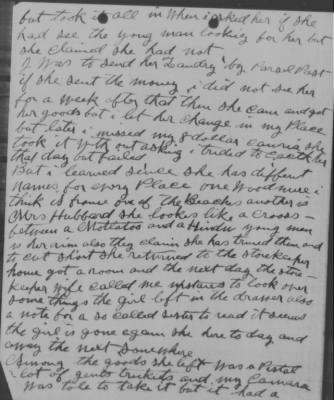 but took it all in When i asked her if she
had see the young man looking for her but
she claimed she had not
I Was to send her Laundry by Parsel Post
if she sent the money i did not see her
for a week after that then she came and got
her goods but i let her change in my Place
but later i missed my 8 dollar camra she
took it With out asking i tried to catch her
that day but failed
But i learned since she has diffrent
names for every Place one Woodmere i
think is frome one of the Beachs another is
Mrs Hubbard she looks like a cross-
between a Molatos and a Hindu young men
is her aim also they claim she has turned them and
to cut short she returned to the storekeeper
home got a room and the next day the store-
keeper wife called me upstares to look over
some things the girl left in the drawer also
a note for a so called sister to read it seems
the girl is gone again she here to day and
away the next somewhere
Among the goods she left Was a Pistol
lot of gents trinkets and my Camara
Was tole to take it but it had a